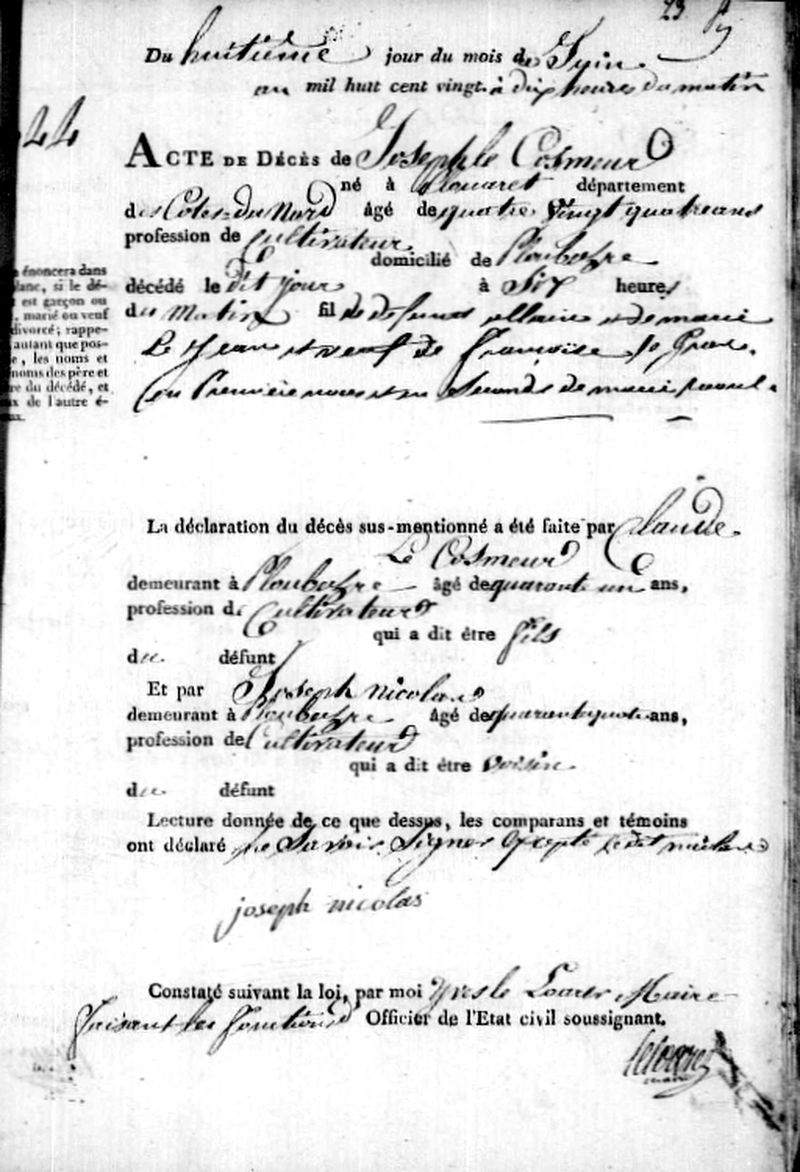 23
Du huitième jour du mois de Juin
an mil huit cent vingt. à dix heures du matin
44
ACTE DE DÉCÈS de Joseph le Cosmeur
né à Plouaret département
des Cotes-du Nord âgé de quatre vingt quatre ans
profession de Cultivateur
domicilié de Ploubezre
décédé le dit jour à Six heures
du Matin fil de defunt allain et de marie
Le Jean et veuf de françoise
en Premiere noces et en Seconds de marie
énoncera dans
blanc, si le dé-
est garçon ou
, marié ou veuf
divorcé; rappe-
autant que pos-
, les noms et
noms des père et
re du décédé, et
ux de l'autre é-
ux.
La déclaration du décès sus-mentionné a été faite par Claude
Le Cosmeur
demeurant à Ploubezre âgé de quarante un ans,
profession de Cultivateur
qui a dit être fils
du défunt
Et par Joseph nicolas
demeurant à Ploubezre âgé de quarante quatre ans,
profession de Cultivateur
qui a dit être voisin
du défunt
Lecture donnée de ce que dessus, les comparans et témoins
ont déclaré ne Savoir Signer Excepté ledit nicolas
joseph nicolas
Constaté suivant la loi, par moi Yves le Maire
faisant les fonctions Officier de l'Etat civil soussignant.
maire